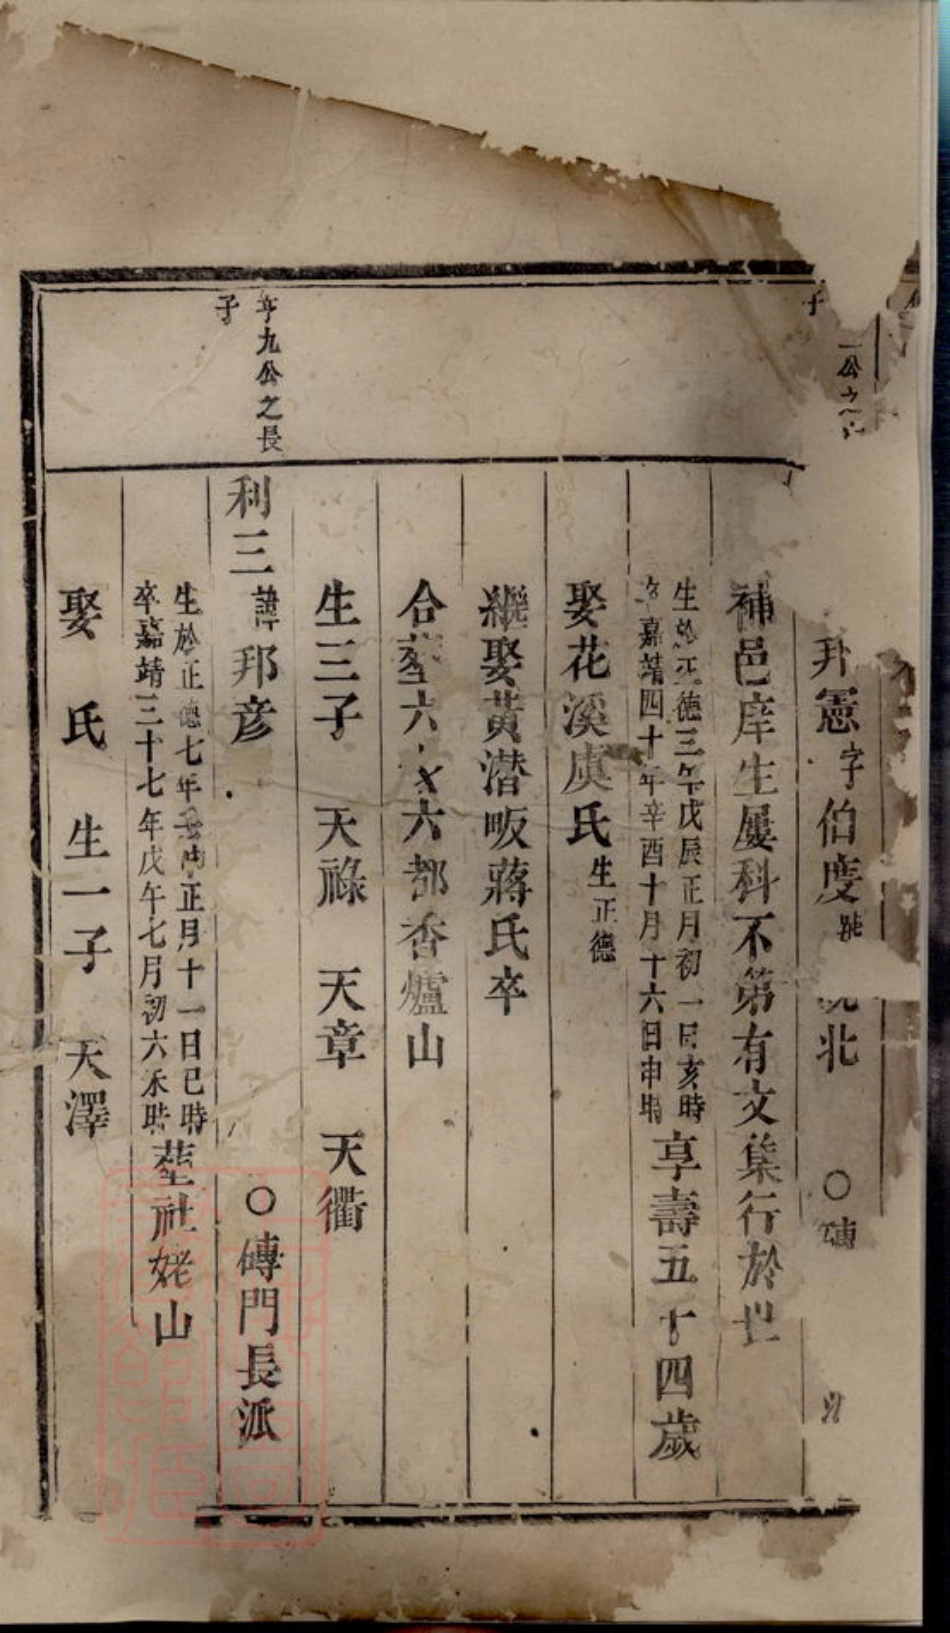 一公之
子
憲字伯度號 北 〇磚
補邑庠生屢科不第有文集行於世
生於正德三年戊辰正月初一日亥時
卒嘉靖四十年辛酉十月十六日申時
享壽五十四歲
娶花溪虞氏生正德
繼娶黃潜畈蔣氏卒
合塟六 六都香爐山
生三子 天祿 天章 天衢
亨九公之長
子
利三諱邦彦 〇磚門長派
生於正德七年壬申正月十一日巳時
卒嘉靖三十七年戊午七月初六未時
塟社姥山
娶 氏 生一子 天澤